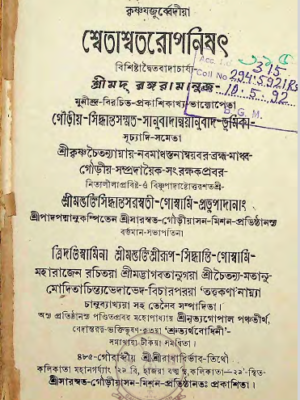 কৃষ্ণযজুর্ব্বেদীয়া
শ্বেতাশ্বতরোপনিষৎ
বিশিষ্টাদ্বৈতবাদাচার্য্য-
শ্রীমদ্ রঙ্গরামানুজ-
মুনীন্দ্র-বিরচিত-প্রকাশিকাখ্য-ভাষ্যোপেতা
গৌড়ীয়-সিদ্ধান্তসম্মত-সানুবাদান্বয়ানুবাদ-ভূমিকা-
সূচ্যাদি-সমেতা
শ্রীকৃষ্ণচৈতন্যাম্নায়-নবমাধস্তনান্বয়বর-ব্রহ্ম-মাধ্ব-
গৌড়ীয়-সম্প্রদায়ৈক-সংরক্ষকপ্রবর-
নিত্যলীলাপ্রবিষ্ট-ওঁ বিষ্ণুপাদাষ্টোত্তরশতশ্রী-
শ্রীমদ্ভক্তিসিদ্ধান্তসরস্বতী-গোস্বামি-প্রভুপাদানাং
শ্রীপাদপদ্মানুকম্পিতেন শ্রীসারস্বত-গৌড়ীয়াসন-মিশন-প্রতিষ্ঠানস্য
বর্ত্তমান-সভাপতিনা
ত্রিদণ্ডিস্বামিনা শ্রীমদ্ভক্তিশ্রীরূপ-সিদ্ধান্তি-গোস্বামি-
মহারাজেন রচিতয়া শ্রীমদ্ভাগবতানুগয়া শ্রীচৈতন্য-মতানু-
মোদিতাচিন্ত্যভেদাভেদ-বিচারপরয়া 'তত্ত্বকণা'নাম্ন্যা
চানুব্যাখ্যয়া সহ তেনৈব সম্পাদিতা।
অস্য প্রতিষ্ঠানস্য পণ্ডিতপ্রবর মহোপাধ্যায় শ্রীনৃত্যগোপাল পঞ্চতীর্থ,
বেদান্তরত্ন-ভক্তিভূষণ-কৃতয়া 'শ্রুত্যর্থবোদিনী'-
সমাখ্যায়া টীকয়া সমন্বিতা।
৪৮৫-গৌরাব্দীয় শ্রীশ্রীরাধাবির্ভাব-তিথৌ
কলিকাতা মহানগর্য্যাং '২৯ বি, হাজরা বর্ত্ম স্থ, কলিকাতা—২৯'-স্থিত-
শ্রীসারস্বত-গৌড়ীয়াসন-মিশন-প্রতিষ্ঠানতঃ প্রকাশিতা।
Acc.
375
Coll No 294.5921RS
10.5.92
G. M.